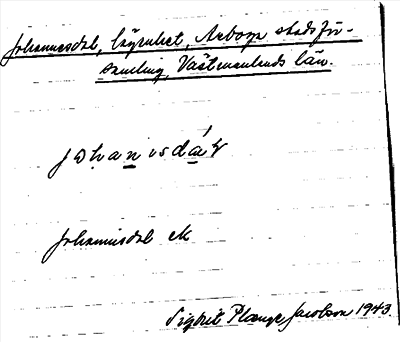 Johannesdal, lägenhet, Arboga stadsför-
samling, Västmanlands län.
johanisdáɫ
Johannisdal ek
Sigbrit Plænge Jacobson 1943.